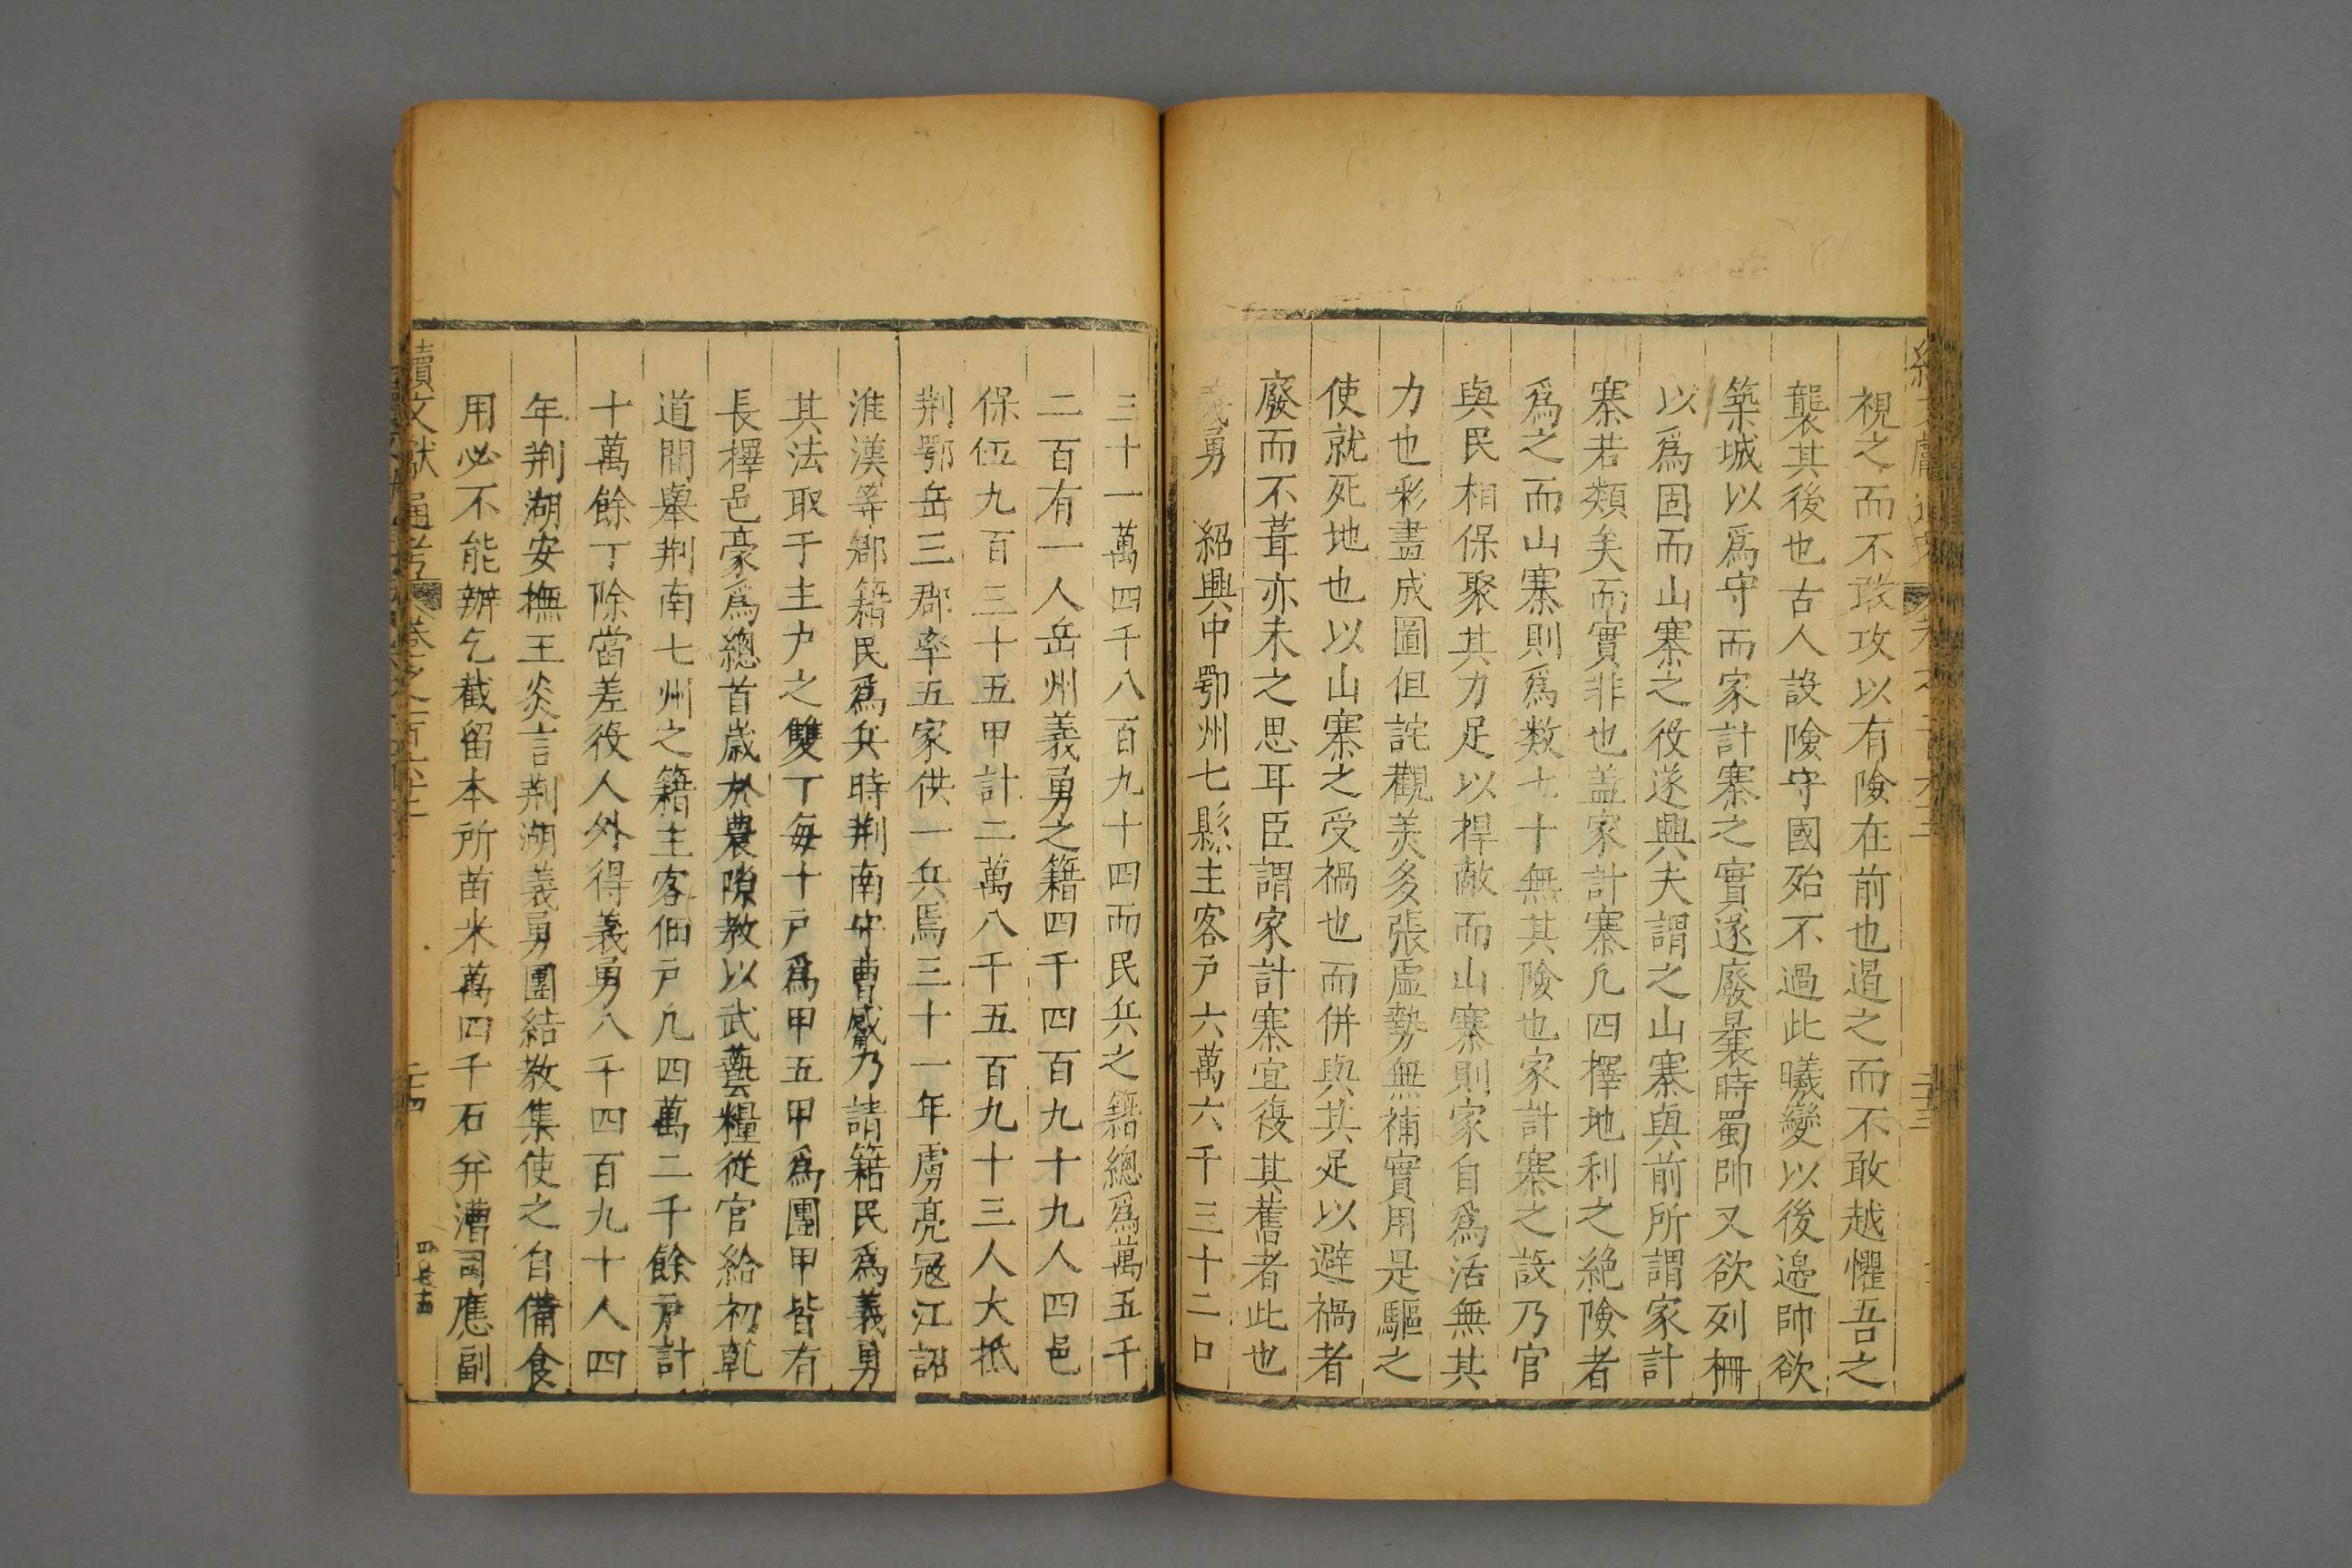 視之而不敢攻以有險在前也過之而不敢越懼吾之
襲其後也古人設險守國殆不過此曦變以後邊帥欲
築城以爲守而家計寨之實遂廢曩時蜀帥又欲列柵
以爲固而山寨之役遂興夫謂之山寨與前所謂家計
寨若類矣而實非也盖家計寨凢四擇地利之絶險者
爲之而山寨則爲數七十無其險也家計寨之設乃官
與民相保聚其力足以捍敵而山寨則家自爲活無其
力也彩畫成圖但詫觀美多張虛勢無補實用是驅之
使就死地也以山寨之受禍也而併與其足以避禍者
廢而不葺亦未之思耳臣謂家計寨宜復其舊者此也
義勇 紹興中鄂州七縣主客戸六萬六千三十二口
三十一萬四千八百九十四而民兵之籍總爲萬五千
二百有一人岳州義勇之籍四千四百九十九人四邑
保伍九百三十五甲計二萬八千五百九十三人大抵
荆鄂岳三郡率五家供一兵焉三十一年虜亮冦江詔
淮漢等郷籍民爲兵時荆南守曹威乃請籍民爲義勇
其法取于主户之雙丁每十戸爲甲五甲爲團甲皆有
長擇邑豪爲總首歲於農隙教以武藝糧從官給初乾
道間舉荆南七州之籍主客佃戸凢四萬二千餘戸計
十萬餘丁除當差役人外得義勇八千四百九十人四
年荆湖安撫王炎言荆湖義勇團結教集使之自備食
用必不能辦乞截留本所苗米萬四千石并漕司應副
續文獻通考 卷之一百六十二
二十四